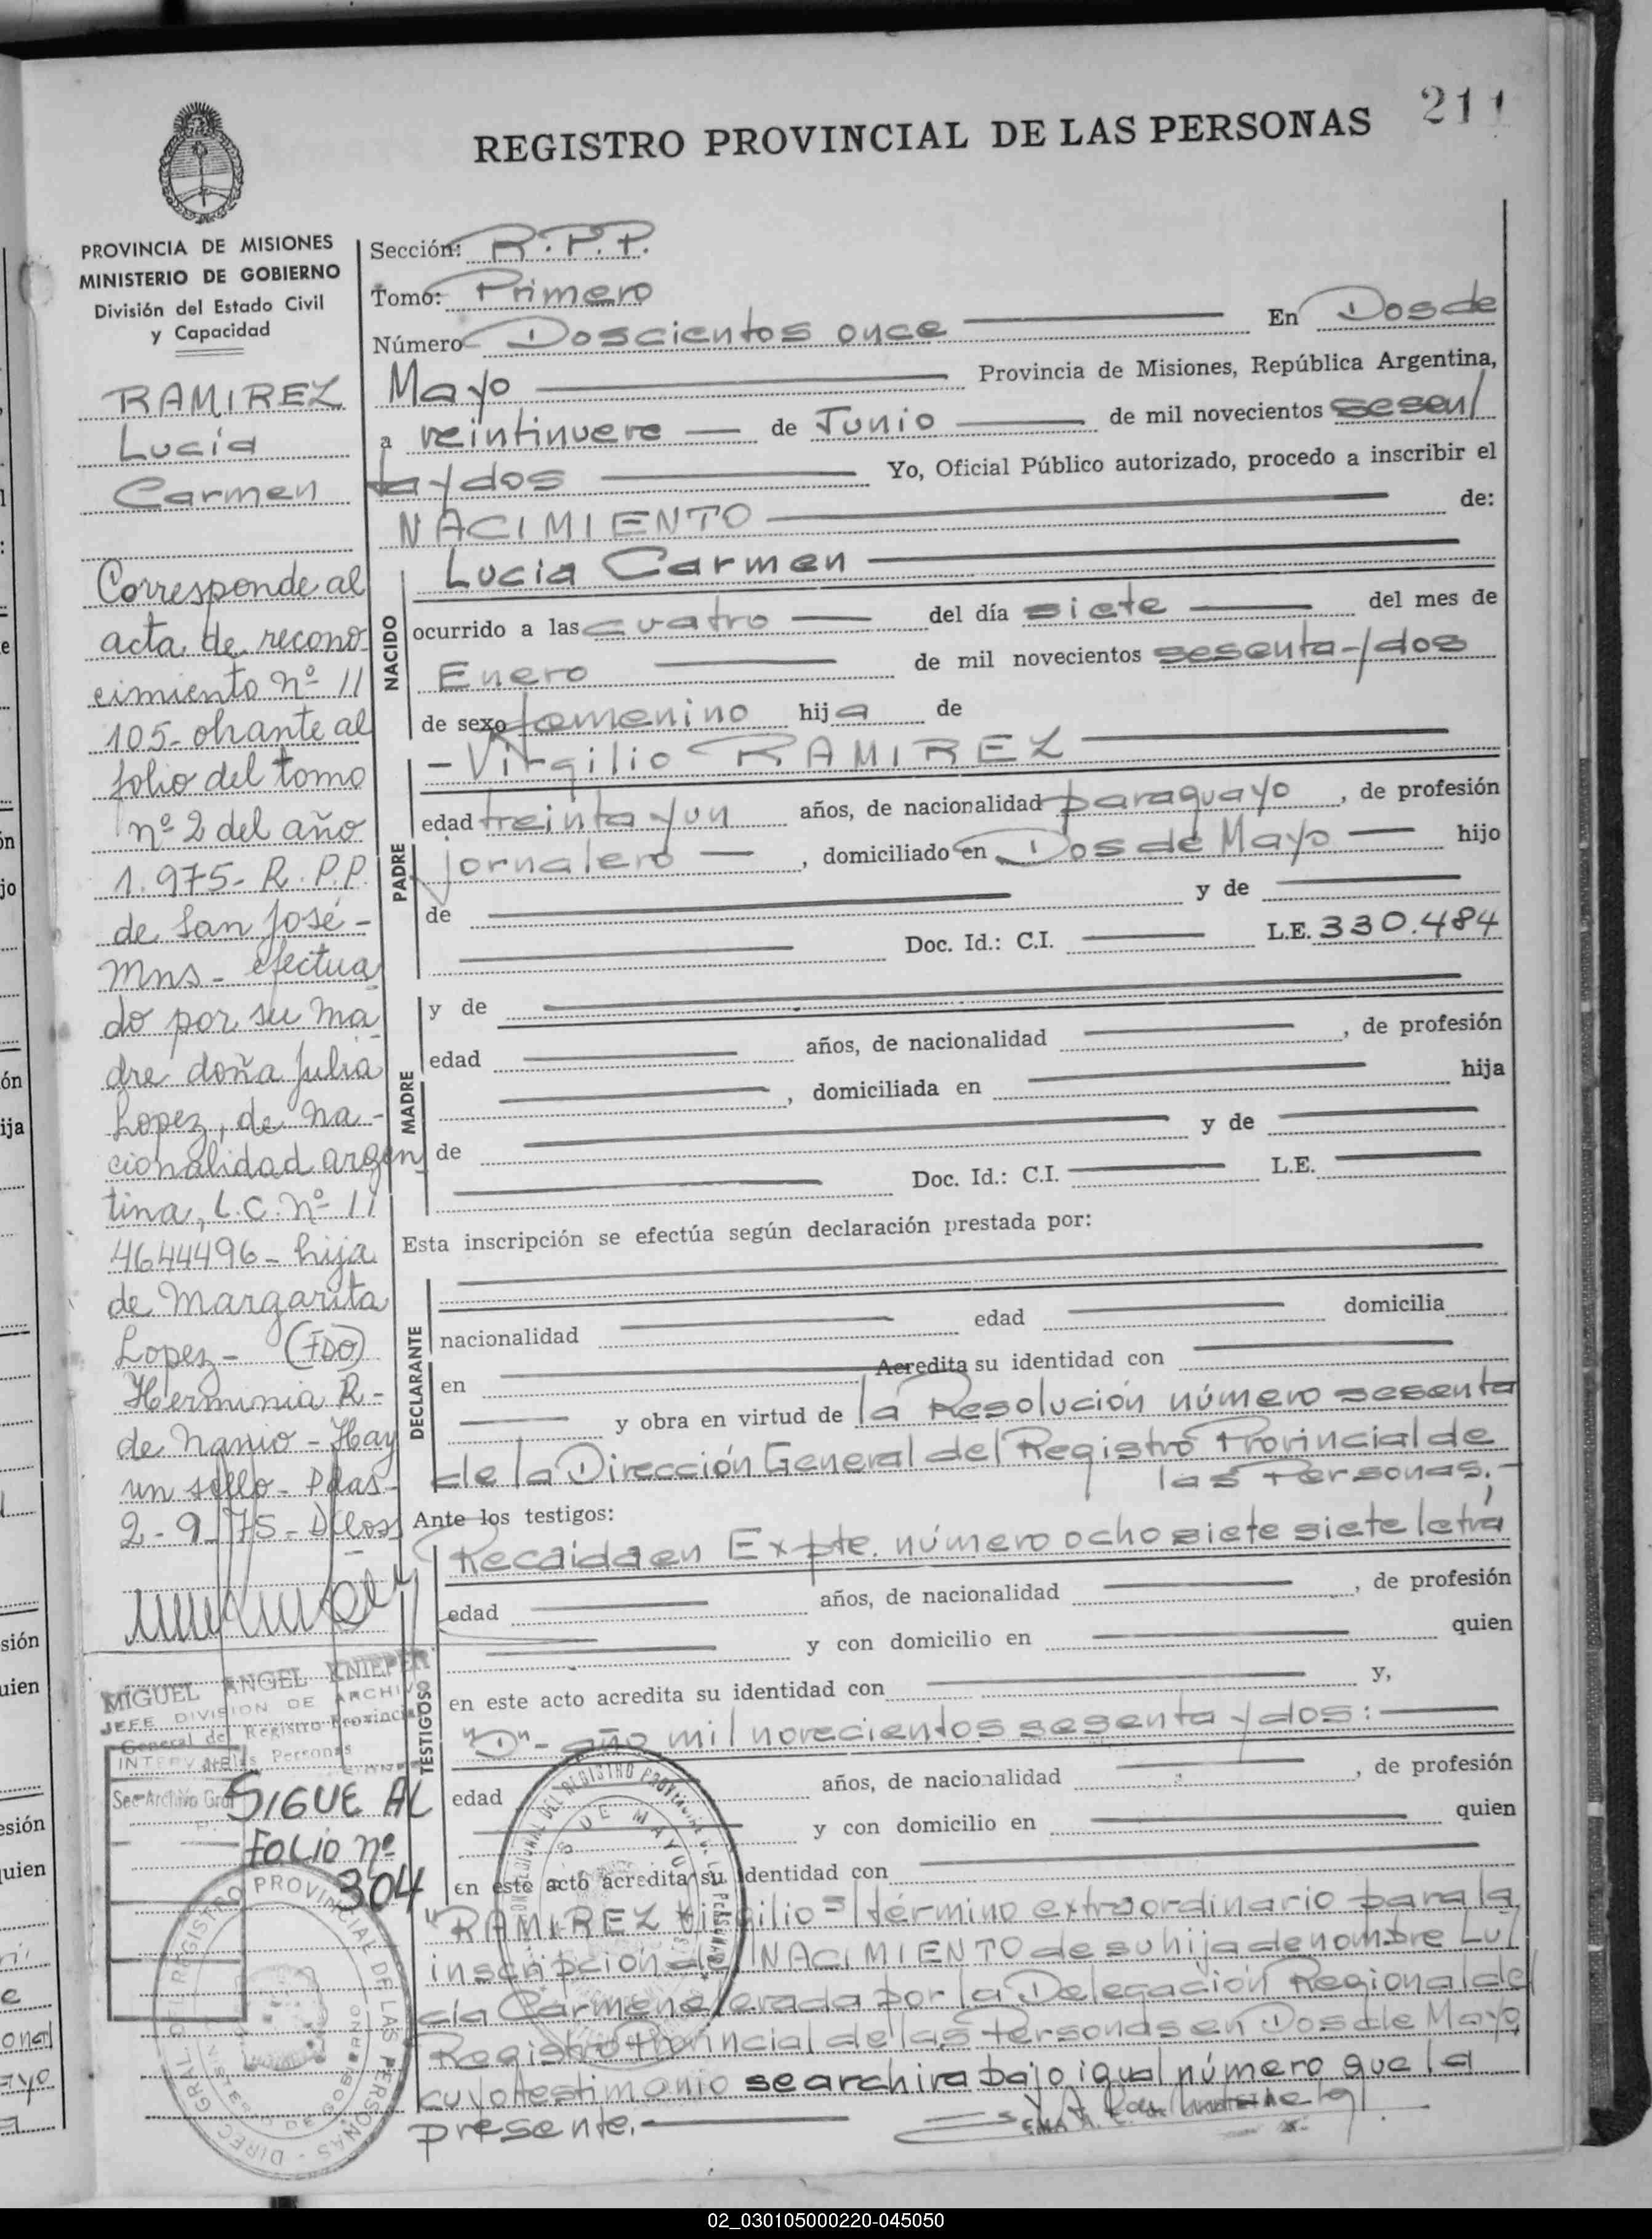 211
REGISTRO PROVINCIAL DE LAS PERSONAS
PROVINCIA DE MISIONES
MINISTERIO DE GOBIERNO
División del Estado Civil
y Capacidad
RAMIREZ
Lucía
Carmen
Corresponde al
acta de recono
cimiento nº 11
105- obrante al
folio del tomo
nº 2 del año
1.975- R.P.P.
de San José-
Mns- efectua
do por su ma
dre doña Julia
Lopez, de na-
cionalidad argen
tina, L.C. nº 11
4644496- hija
de Margarita
Lopez- (FDO)
Herminia R-
de Nanio - Hay
un sello- Pdas-
2-9-75-
MIGUEL ANGEL KNIEPER
JEFE DIVISION DE ARCHIVO
General del Registro Provincial
de las Personas
Sec Archivo Gral
SIGUE AL
FOLIO nº
304
Sección: R.P.P.
Tomo: Primero
Número Doscientos once En Dos de
Mayo Provincia de Misiones, República Argentina,
a veintinueve de Junio de mil novecientos sesen/
ta y dos Yo, Oficial Público autorizado, procedo a inscribir el
NACIMIENTO de:
NACIDO
Lucia Carmen
ocurrido a las cuatro del día siete del mes de
Enero de mil novecientos sesenta y dos
de sexo femenino hija de
PADRE
- Virgilio RAMIREZ
edad treinta y un años, de nacionalidad paraguayo, de profesión
jornalero, domiciliado en Dos de Mayo hijo
de y de
Doc. Id.: C.I. L.E. 330.484
MADRE
y de
edad años, de nacionalidad , de profesión
, domiciliada en hija
de y de
Doc. Id.: C.I. L.E.
Esta inscripción se efectúa según declaración prestada por:
DECLARANTE
nacionalidad edad domicilia
en Acredita su identidad con
y obra en virtud de la Resolución número sesenta
de la Dirección General del Registro Provincial de
las Personas,-
Ante los testigos:
TESTIGOS
Recaida en Expte. número ocho siete siete letra
edad años, de nacionalidad , de profesión
y con domicilio en quien
en este acto acredita su identidad con y,
"D"- año mil novecientos sesenta y dos:
edad años, de nacionalidad , de profesión
y con domicilio en quien
en este acto acredita su identidad con
"RAMIREZ Virgilio s/término extraordinario para la
inscripción de NACIMIENTO de su hija de nombre Lu/
cía Carmen elevada por la Delegación Regional del
Registro Provincial de las Personas en Dos de Mayo,
cuyo testimonio se archiva bajo igual número que la
presente.
REGISTRO PROVINCIAL DE LAS PERSONAS - DIREC. GRAL.
MINISTERIO DE GOBIERNO
DOS DE MAYO
02_030105000220-045050